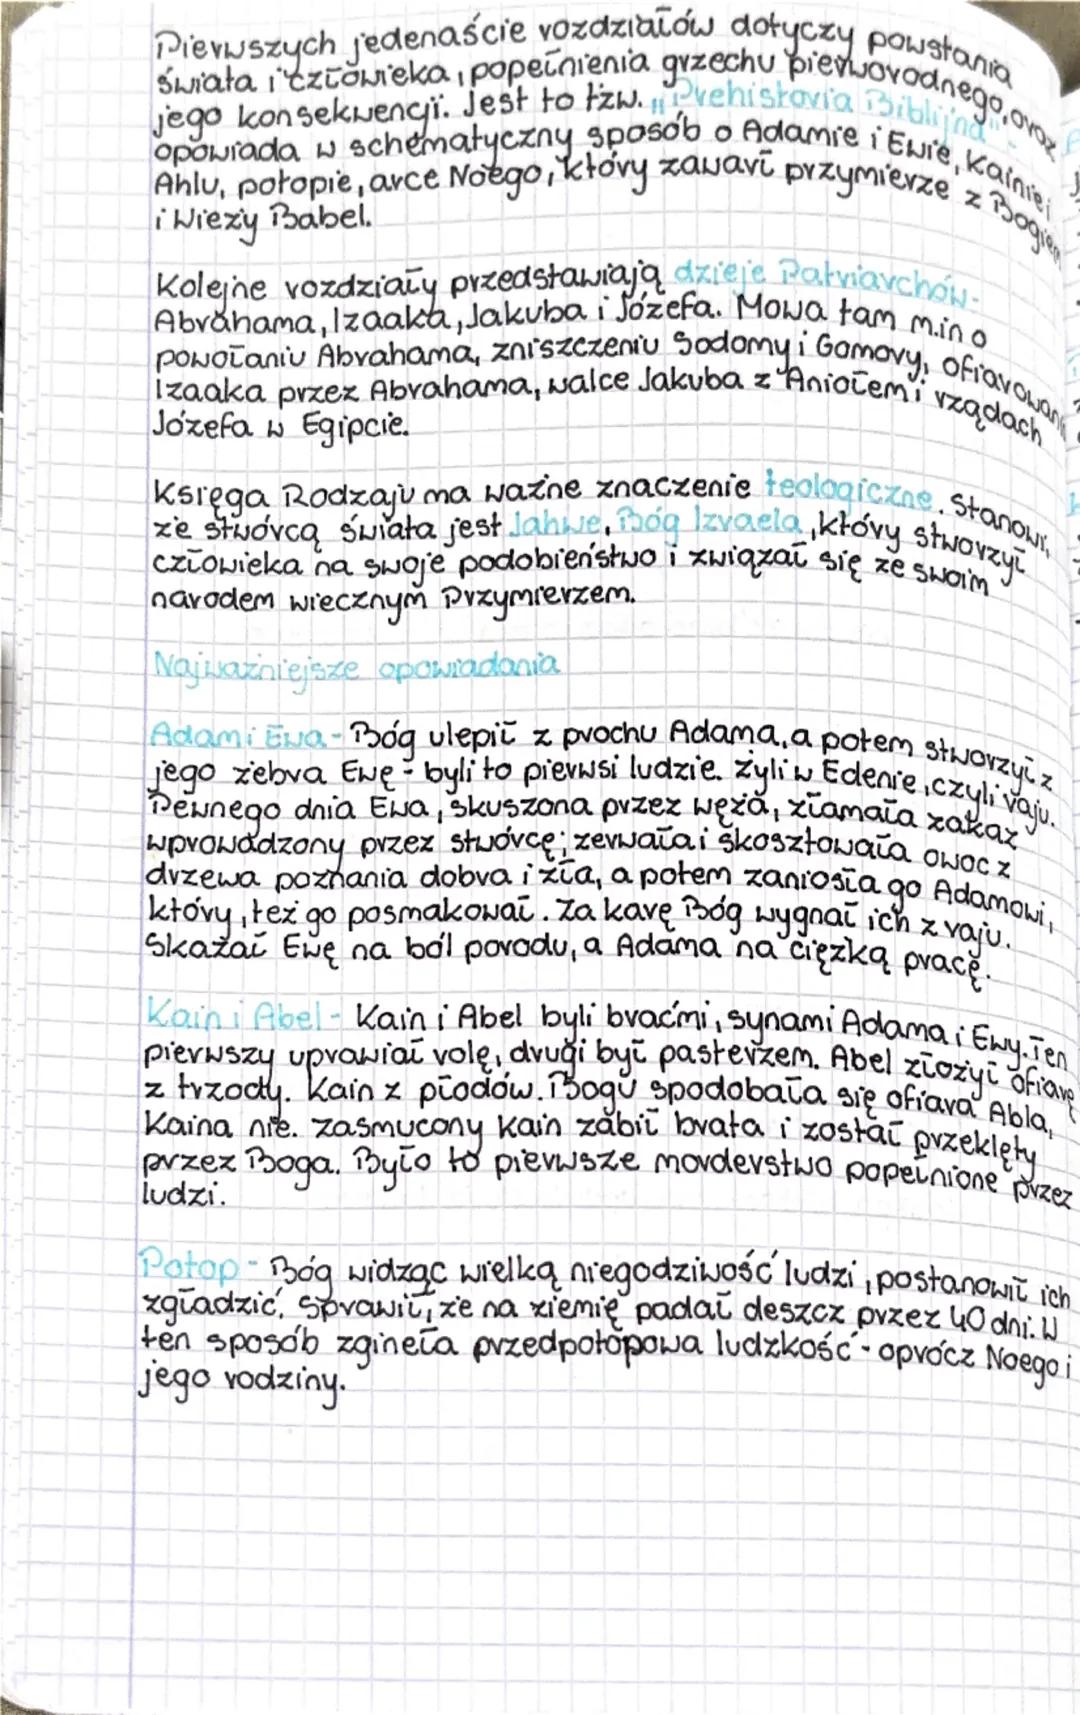 Pierwszych jedenaście rozdziałów dotyczy powstania
świata i człowieka, popełnienia grzechu pierworodnego, oraz
jego konsekwencji. Jest to tzw. "Prehistoria Biblijna".
opowiada w schematyczny sposób o Adamie i Ewie, Kainie i
Ablu, potopie, arce Noego, który zawarł przymierze z Bogiem
i Wieży Babel.
Kolejne rozdziały przedstawiają dzieje Patriarchów-
Abrahama, Izaaka, Jakuba i Józefa. Mowa tam m.in o
powołaniu Abrahama, zniszczeniu Sodomy i Gomory, ofiarowaniu
Izaaka przez Abrahama, walce Jakuba z Aniołem i rządach
Józefa w Egipcie.
Księga Rodzaju ma ważne znaczenie teologiczne. Stanowi,
że stwórcą świata jest Jahwe, Bóg Izraela, który stworzył
człowieka na swoje podobieństwo i związał się ze swoim
narodem wiecznym Przymierzem.
Najważniejsze opowiadania
Adam i Ewa - Bóg ulepił z prochu Adama, a potem stworzył z
jego żebra Ewę - byli to pierwsi ludzie. Żyli w Edenie, czyli raju.
Pewnego dnia Ewa, skuszona przez węża, złamała zakaz
wprowadzony przez stwórcę; zerwała i skosztowała owoc z
drzewa poznania dobra i zła, a potem zaniosła go Adamowi,
który, też go posmakował. Za karę Bóg wygnał ich z raju.
Skazał Ewę na ból porodu, a Adama na ciężką pracę.
Kain i Abel - Kain i Abel byli braćmi, synami Adama i Ewy. Ten
pierwszy uprawiał rolę, drugi był pasterzem. Abel złożył ofiarę
z trzody. Kain z płodów. Bogu spodobała się ofiara Abla,
Kaina nie. zasmucony Kain zabił brata i został przeklęty
przez Boga. Było to pierwsze morderstwo popełnione przez
ludzi.
Potop - Bóg widząc wielką niegodziwość ludzi, postanowił ich
zgładzić. Sprawił, że na ziemię padał deszcz przez 40 dni. W
ten sposób zgineła przedpotopowa ludzkość - oprócz Noego i
jego rodziny.